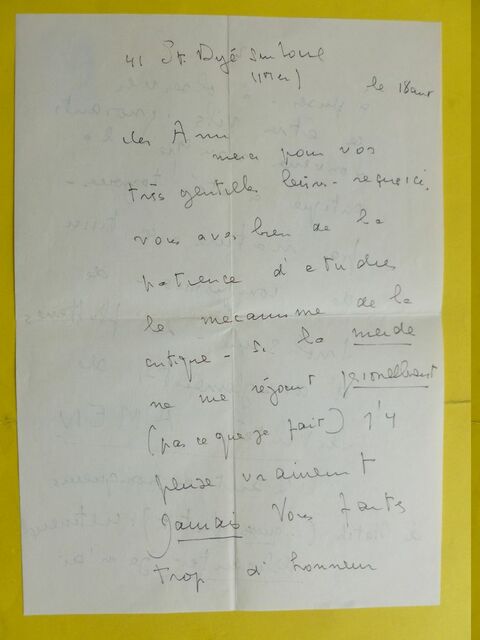 41 St. Dyé sur Loire
(Mer)
le 18 aout
mes Amis
merci pour vos
très gentilles lettres - reçues ici.
vous avez bien de la
patience d'etudier
le mecanisme de la
critique - si la merde
ne me réjouit
(pas ce que je fait) j'y
pense vraiment
Jamais Vous faites
trop d'honneur